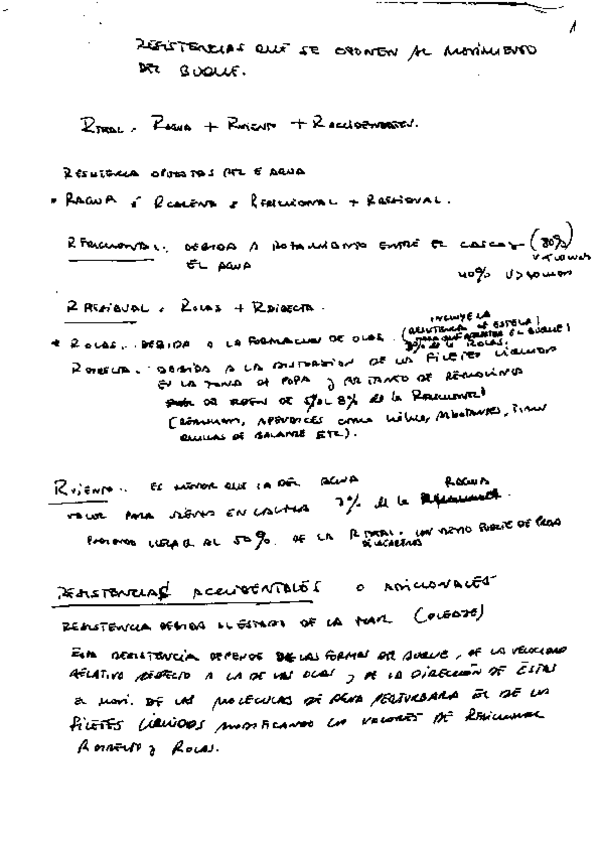 1
RESISTENCIAS QUE SE OPONEN AL MOVIMIENTO
DEL BUQUE.
RTOTAL = RAGUA + RVIENTO + RACCIDENTALES.
RESISTENCIA OPUESTAS POR EL AGUA
* RAGUA ó RCARENA = RFRICCIONAL + RRESIDUAL.
RFRICCIONAL: DEBIDA A ROZAMIENTO ENTRE EL CASCO y (80%)
EL AGUA
40%
RRESIDUAL = ROLAS + RDIRECTA.
INCLUYE LA
* ROLAS: DEBIDA A LA FORMACION DE OLAS. (RESISTENCIA DE ESTELA)
RDIRECTA: DEBIDA A LA DISTORSION DE LOS FILETES LIQUIDOS
EN LA ZONA DE POPA y POR TANTO DE REMOLINOS
DE ORDEN DE 5% AL 8% de la RFRICCIONAL
(REMOLINOS, APENDICES como hélices, ARBOTANTES, TIMON
QUILLAS DE BALANCE ETC).
RVIENTO: ES MENOR QUE LA DEL AGUA RAGUA
VALOR PARA VIENTO EN CALMA 3% de la
PUDIENDO LLEGAR AL 50% DE LA RTOTAL. CON VIENTO FUERTE DE PROA
RESISTENCIAS ACCIDENTALES O ADICIONALES
RESISTENCIA DEBIDA AL ESTADO DE LA MAR (OLEAJE)
ESTA RESISTENCIA DEPENDE DE LAS FORMAS DEL BUQUE, DE LA VELOCIDAD
RELATIVA RESPECTO A LA DE LAS OLAS y DE LA DIRECCIÓN DE ESTAS
EL MOVI. DE LAS MOLECULAS DE AGUA PERTURBARA EL DE LOS
FILETES LIQUIDOS MODIFICANDO LOS VALORES DE RFRICCIONAL
RDIRECTA y ROLAS.